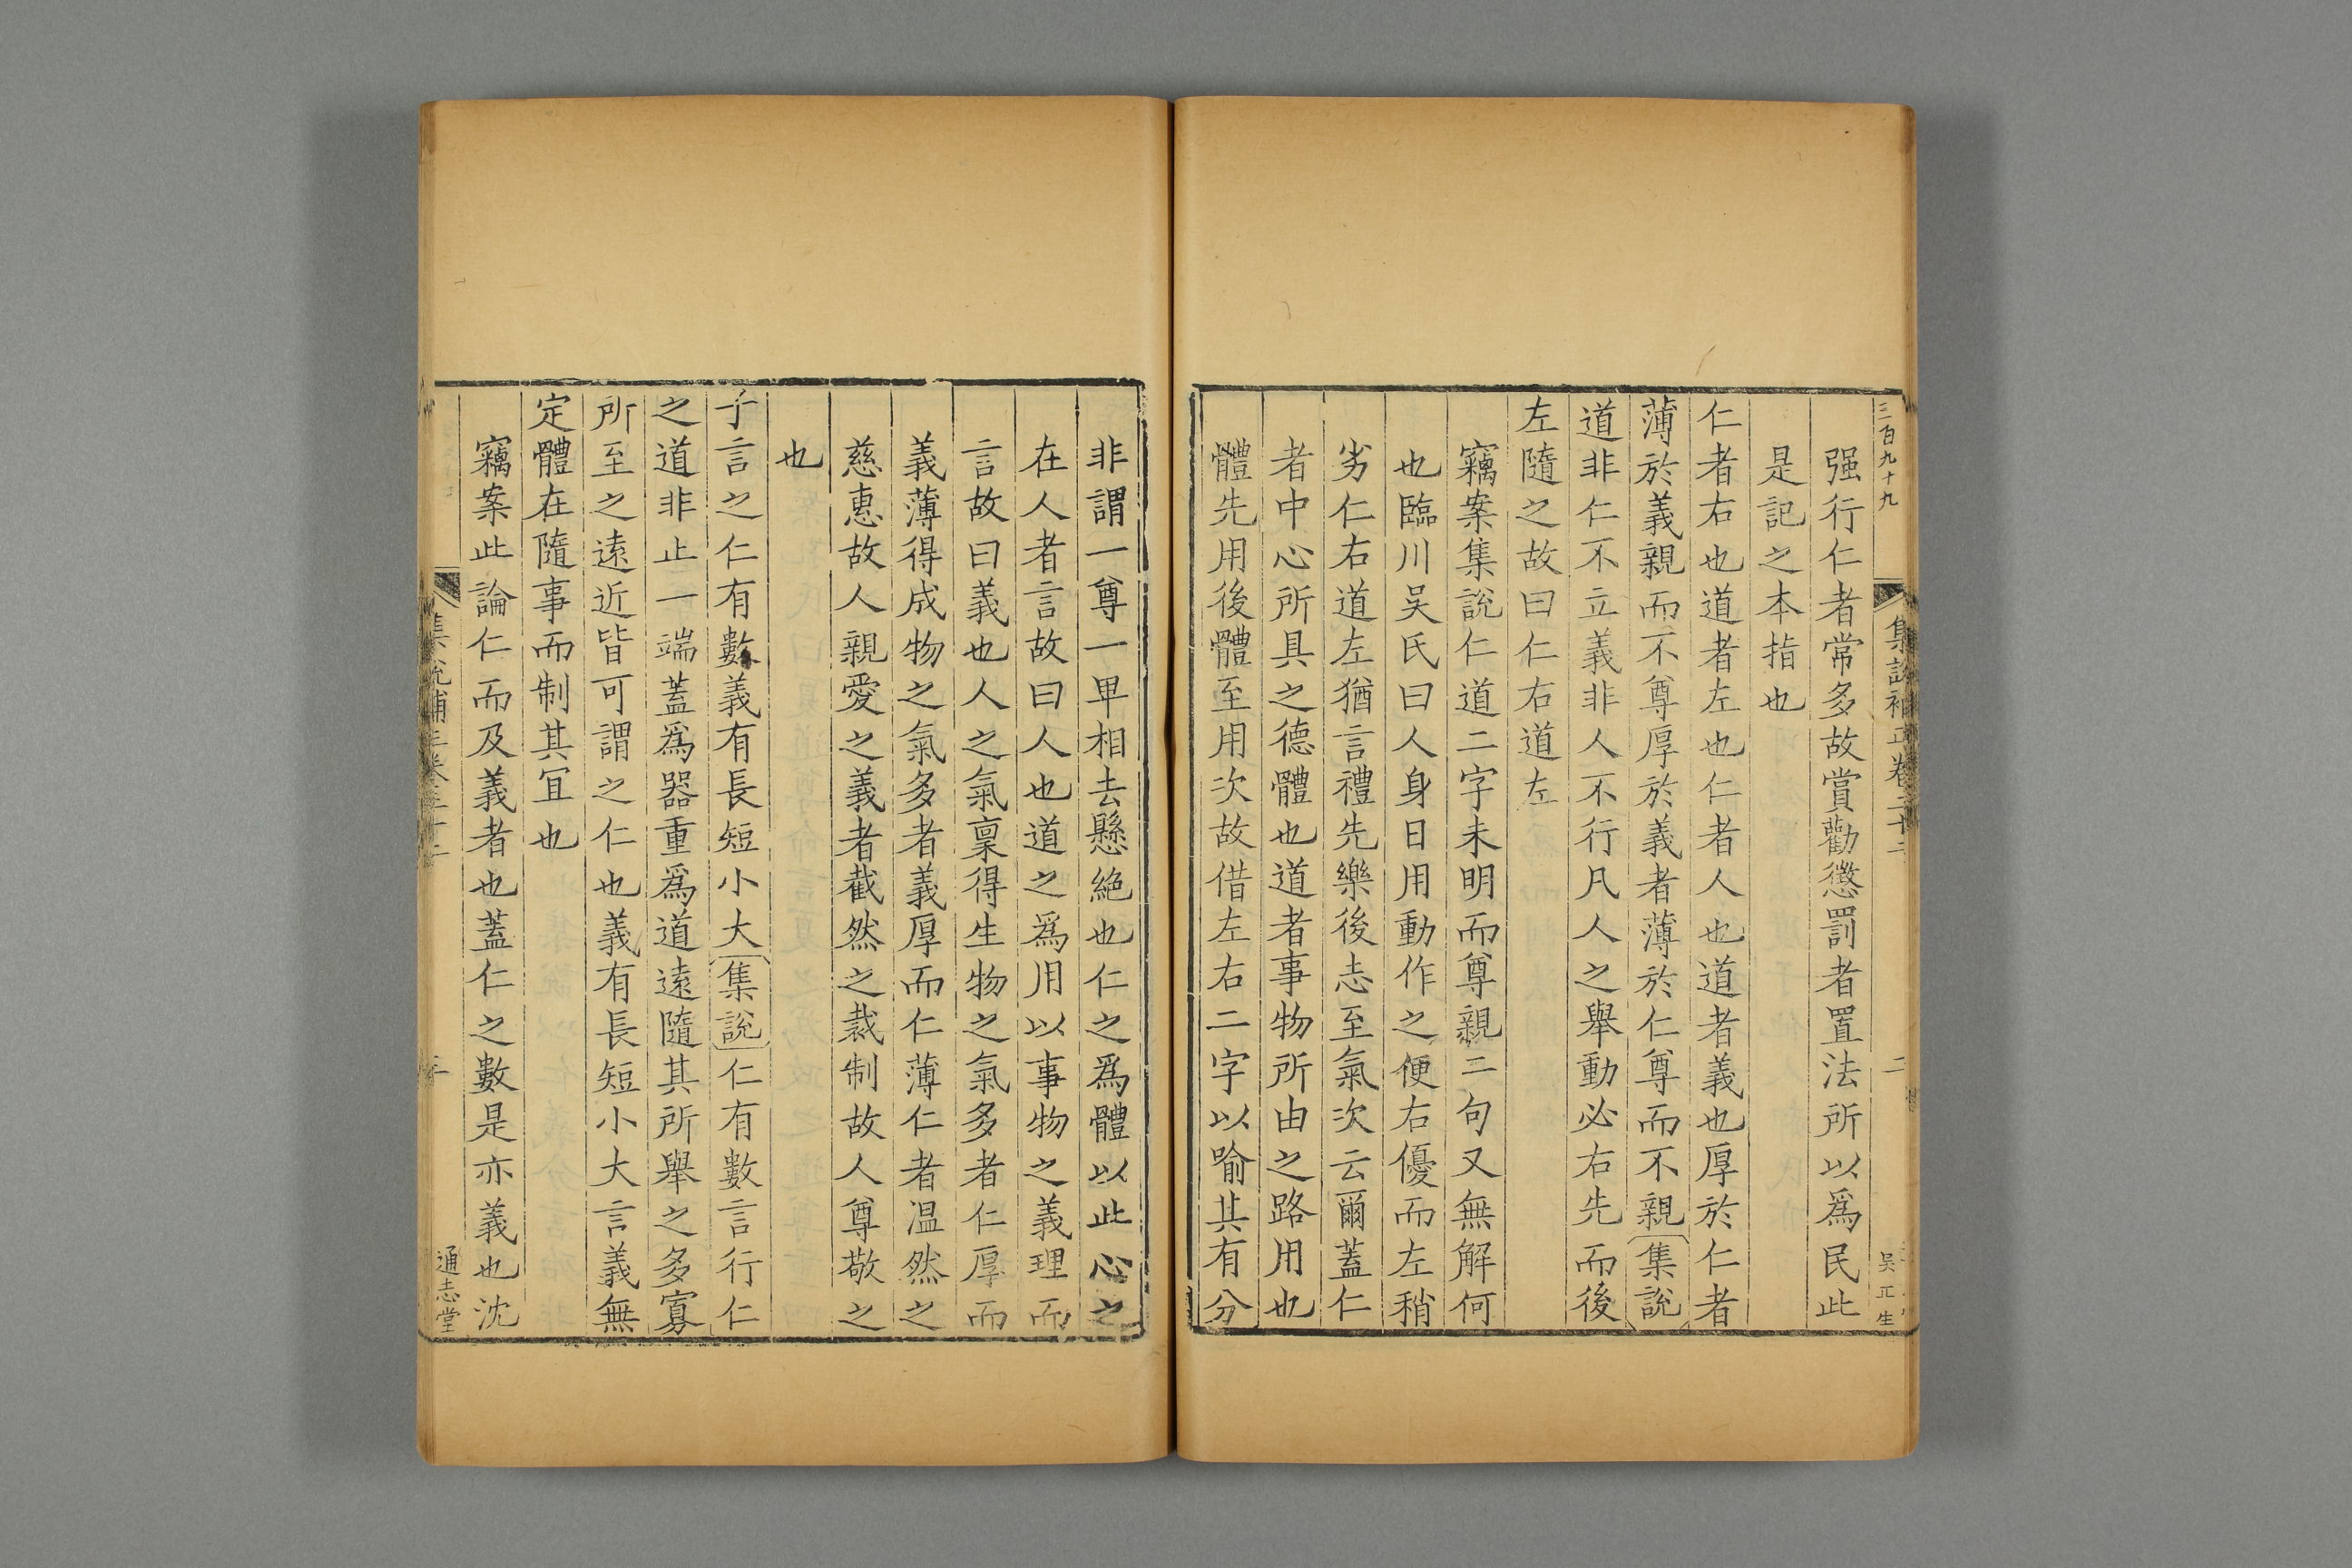 三百九十九
集說補正卷三十二
二
吳正生
强行仁者常多故賞勸懲罰者置法所以爲民此
是記之本指也
仁者右也道者左也仁者人也道者義也厚於仁者
薄於義親而不尊厚於義者薄於仁尊而不親集說
道非仁不立義非人不行凡人之舉動必右先而後
左隨之故曰仁右道左
竊案集說仁道二字未明而尊親二句又無解何
也臨川吳氏曰人身日用動作之便右優而左稍
劣仁右道左猶言禮先樂後志至氣次云爾蓋仁
者中心所具之德體也道者事物所由之路用也
體先用後體至用次故借左右二字以喻其有分
非謂一尊一卑相去懸絕也仁之爲體以此心之
在人者言故曰人也道之爲用以事物之義理而
言故曰義也人之氣稟得生物之氣多者仁厚而
義薄得成物之氣多者義厚而仁薄仁者温然之
慈惠故人親愛之義者截然之裁制故人尊敬之
也
子言之仁有數義有長短小大集說仁有數言行仁
之道非止一端蓋爲器重爲道遠隨其所舉之多寡
所至之遠近皆可謂之仁也義有長短小大言義無
定體在隨事而制其宜也
竊案此論仁而及義者也蓋仁之數是亦義也沈
集說補正卷三十二
通志堂